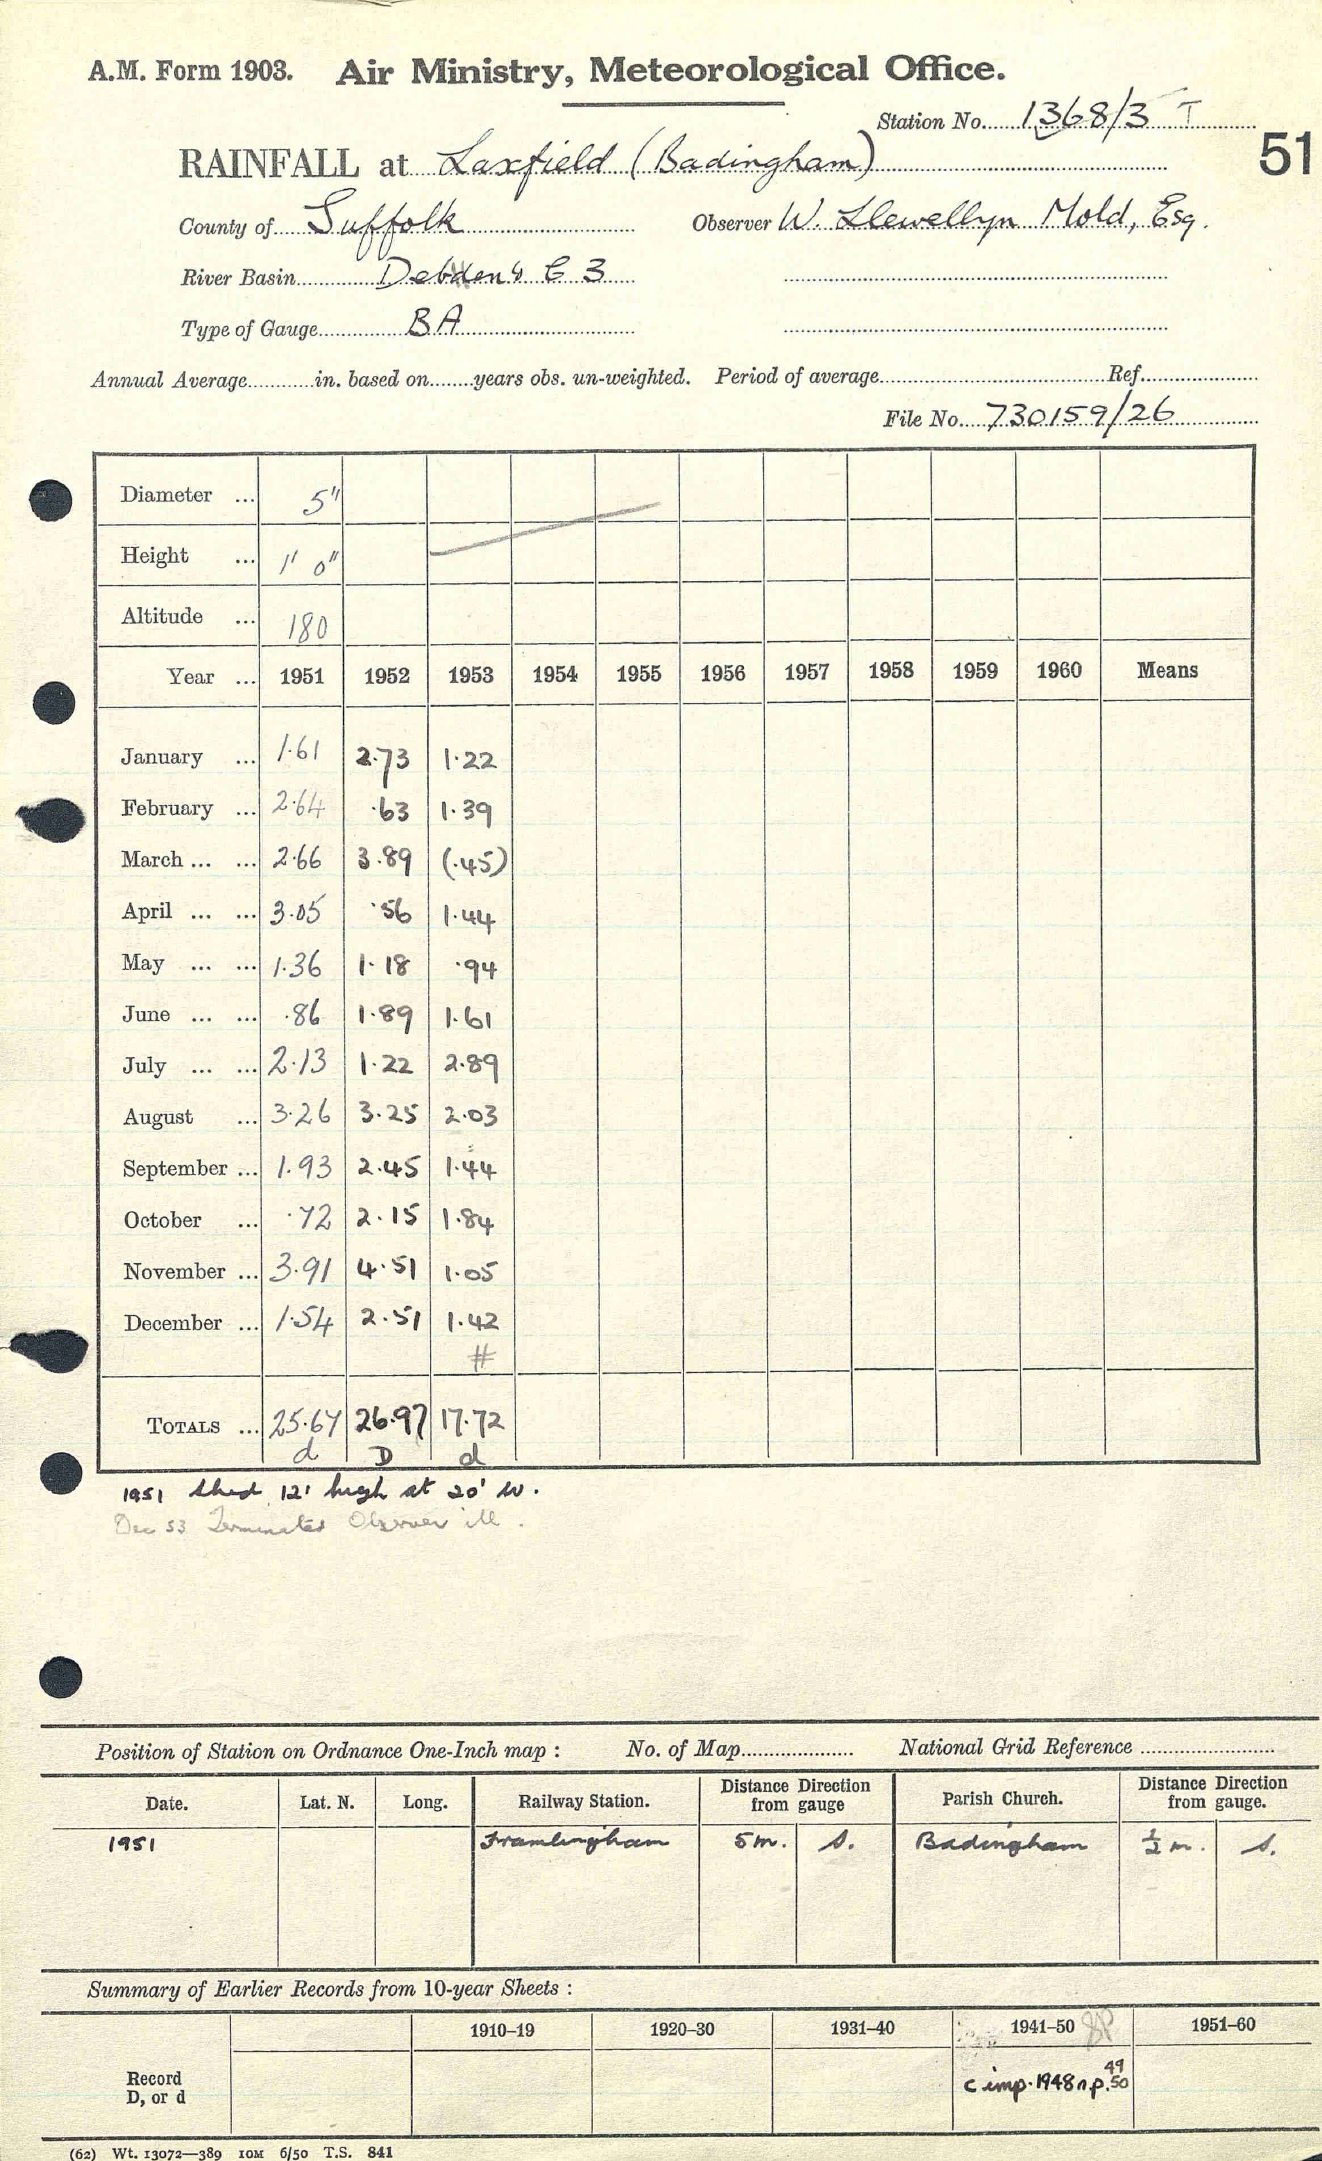 A.M. Form 1903. Air Ministry, Meteorological Office.
Station No. 1368/3 T
51
RAINFALL at Laxfield (Badingham)
County of Suffolk Observer W. Llewellyn Mold, Esq.
River Basin C 3
Type of Gauge BA
Annual Average in. based on years obs. un-weighted. Period of average Ref.
File No. 730159/26
Diameter ... 5"
Height ... 1' 0"
Altitude ... 180
Year ... 1951 1952 1953 1954 1955 1956 1957 1958 1959 1960 Means
January ... 1.61 2.73 1.22
February ... 2.64 .63 1.39
March ... ... 2.66 3.89 (.45)
April ... ... 3.05 .56 1.44
May ... ... 1.36 1.18 .94
June ... ... .86 1.89 1.61
July ... ... 2.13 1.22 2.89
August ... 3.26 3.25 2.03
September ... 1.93 2.45 1.44
October ... .72 2.15 1.84
November ... 3.91 4.51 1.05
December ... 1.54 2.51 1.42
#
TOTALS ... 25.67 26.97 17.72
d D d
1951 shed 12' high at 20' W.
Dec 53 Terminated Observer ill.
Position of Station on Ordnance One-Inch map : No. of Map National Grid Reference
Date. Lat. N. Long. Railway Station. Distance Direction from gauge Parish Church. Distance Direction from gauge.
1951 Framlingham 5m. S. Badingham ½ m. S.
Summary of Earlier Records from 10-year Sheets :
1910–19 1920–30 1931–40 1941–50 1951–60
Record D, or d
c imp. 1948 n.p. 49 50
(62) Wt. 13072—389 10M 6/50 T.S. 841